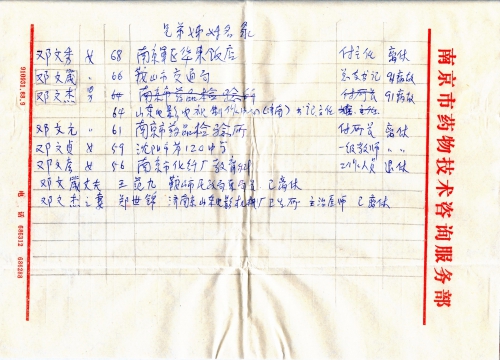 兄弟姊妹名录
邓文秀 女 68 南京军区华东饭店 付主任 离休
邓文箴 〃 66 鞍山市交通局 总支书记 91病故
邓文杰 男 64 南京市药品检验所 付所长 91病故
64 山东电影电视制作中心(济南) 书记主任
邓文元 〃 61 南京市药品检验所 付所长 离休
邓文贞 女 59 沈阳市第120中学 一级教师 〃 〃
邓文彦 女 56 南京市化纤厂教育科 工作人员 退休
邓文箴丈夫 王范九 鞍山市民政局局长 已离休
邓文杰之妻 郑世铎 济南东山东电影机械厂卫生所 主治医师 已离休
南京市药物技术咨询服务部
电话 606312 606288
910031.88.9